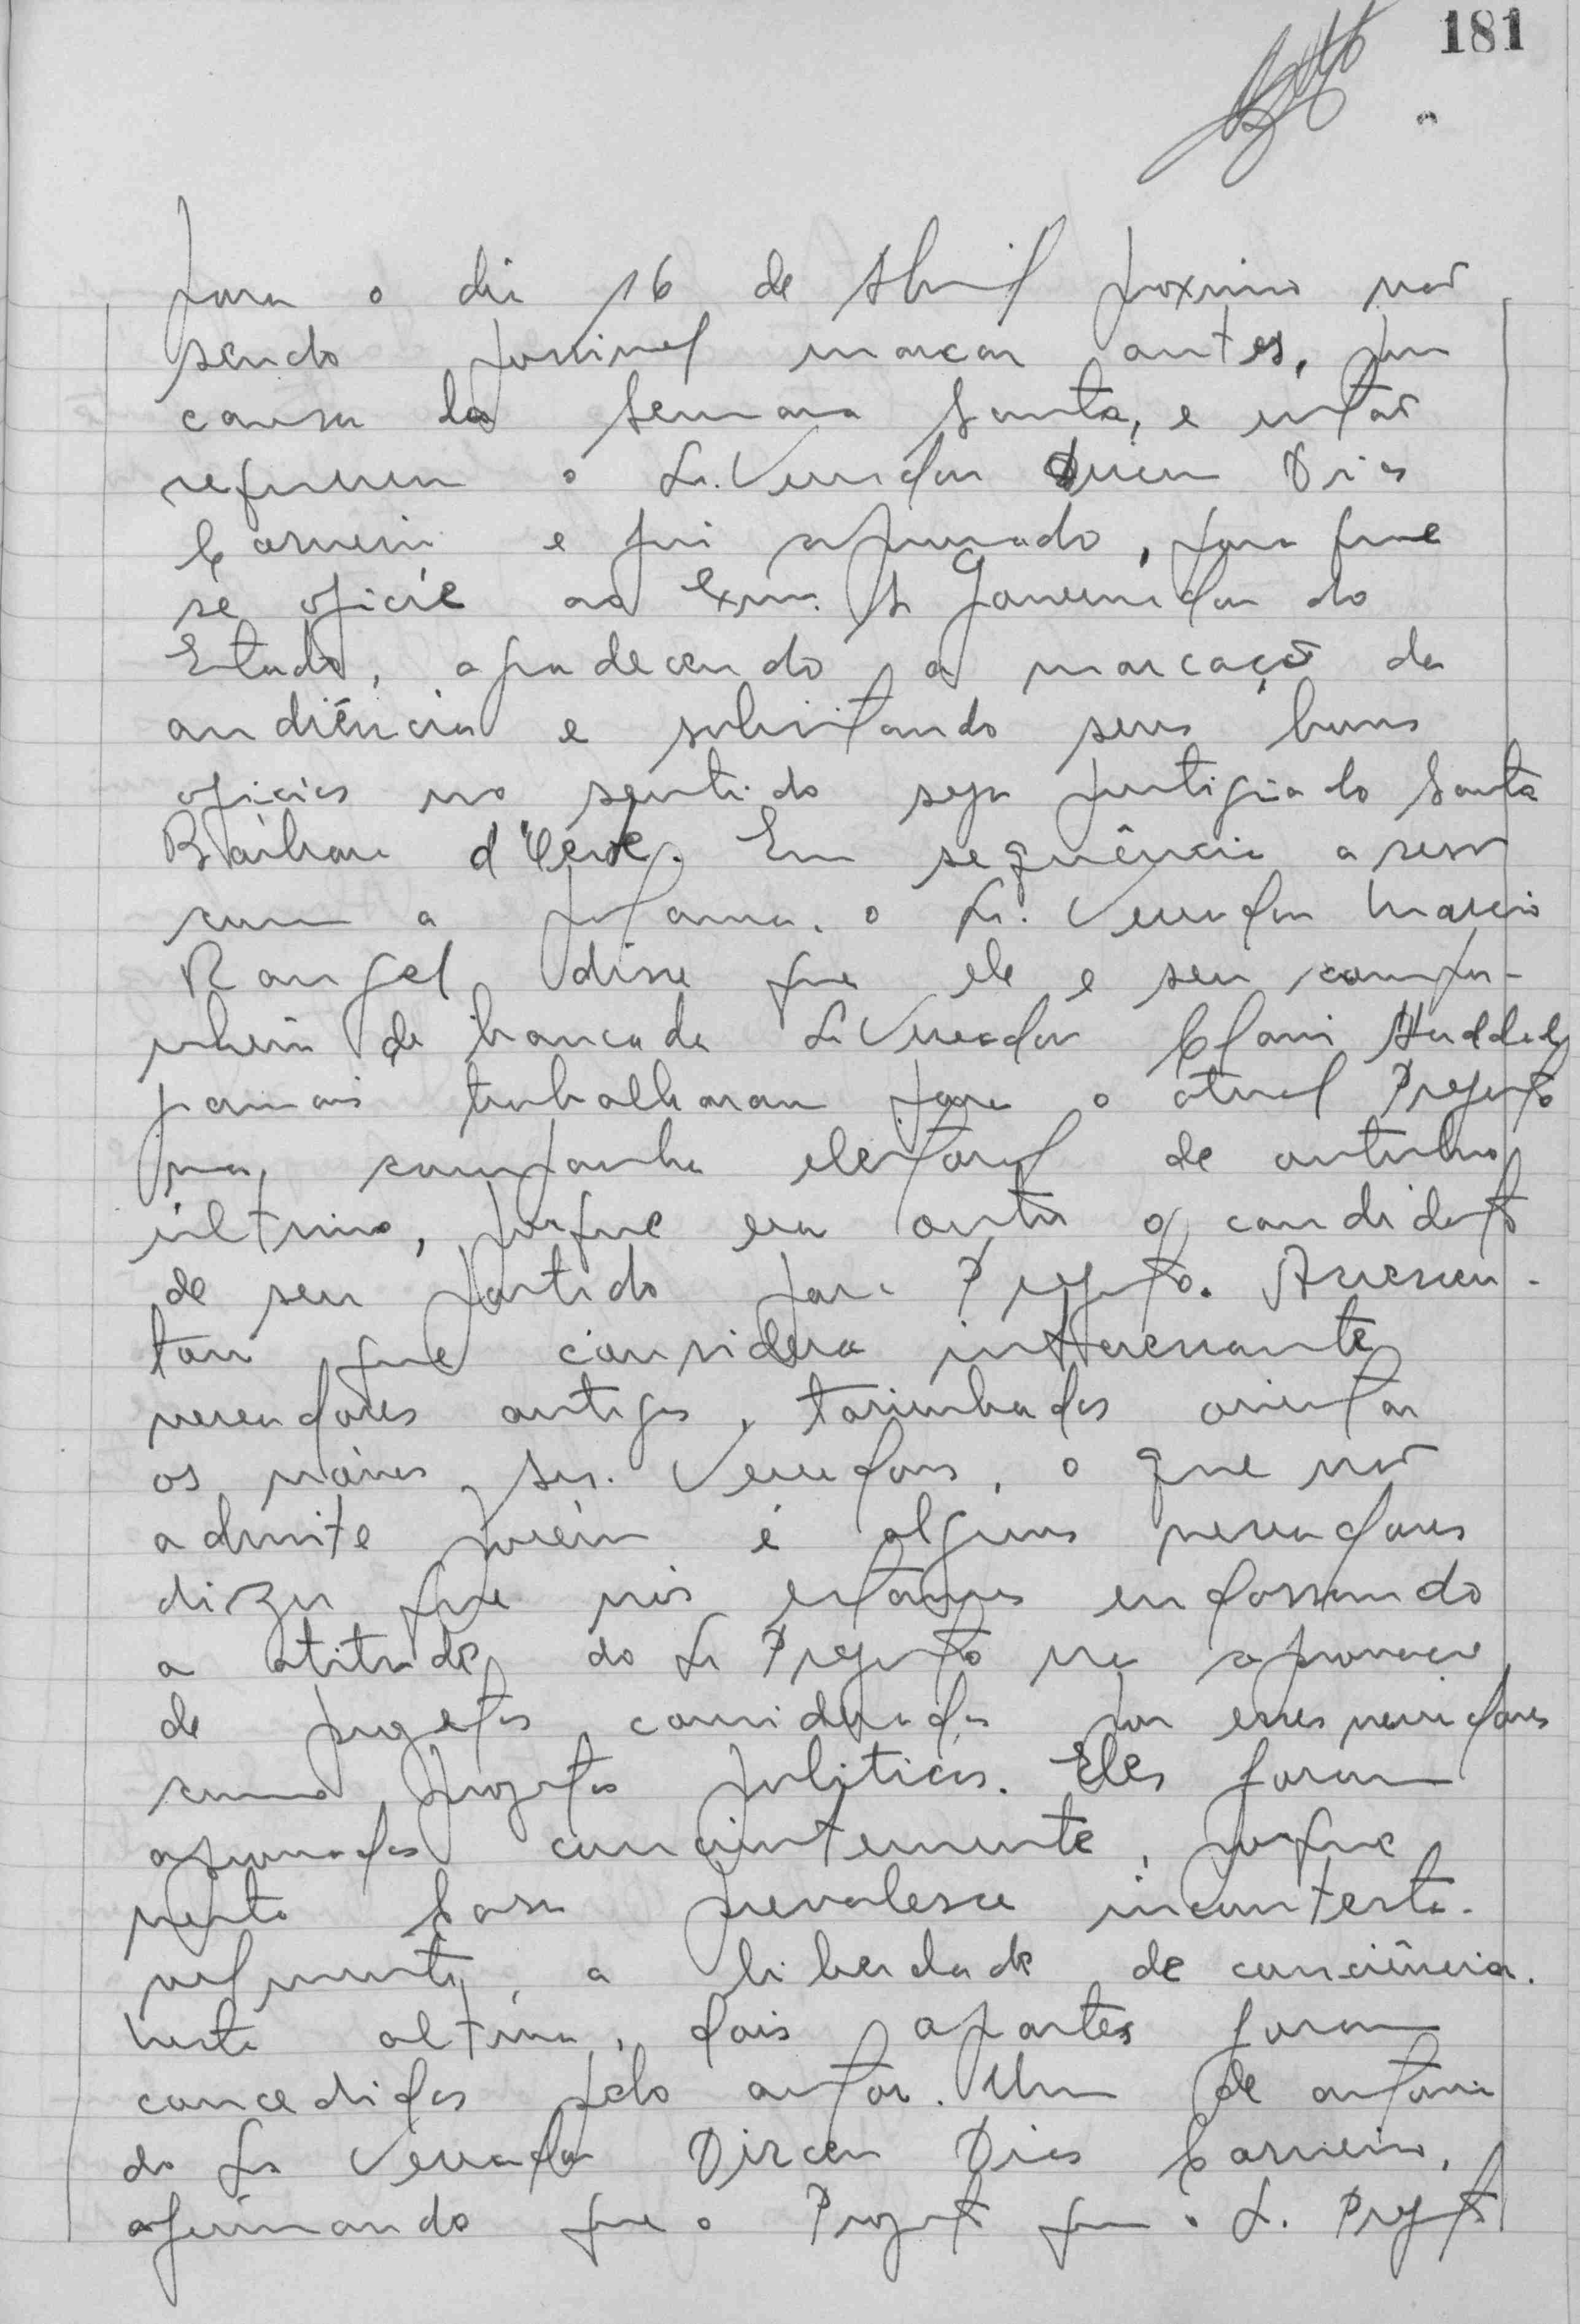 181
para o dia 16 de Abril proximo não
sendo possivel marcar antes, por
causa da Semana Santa, e então
requereu o Sr. Vereador Dirceu Dias
Carneiro e foi aprovado, para que
se oficie ao Exmo. Sr Governador do
Estado, agradecendo a marcação da
audiência e solicitando seus bons
oficios no sentido seja prestigiado Santa
Bárbara d'Oeste. Em sequência a sessão
com a palavra, o Sr. Vereador Marcio
Rangel disse que ele e seu compa-
nheiro de bancada Sr Vereador Haddad
jamais trabalharam para o atual Prefeito
na campanha eleitoral de outubro
último, porque era outro o candidato
de seu partido para Prefeito. Acrescen-
tou que considera interessante
vereadores antigos, tarimbados orientar
os novos Srs. Vereadores, o que não
admite porém é alguns vereadores
dizer que nós estamos endossando
a atitude do Sr Prefeito na aprovação
de projetos considerados por esses vereadores
como projetos politicos. Eles foram
aprovados concientemente, porque
nesta Casa prevalesce incontesta-
velmente, a liberdade de conciência.
Nesta altura, dois apartes foram
concedidos pelo autor. Um de autoria
do Sr Vereador Dirceu Dias Carneiro,
afirmando que o Projeto que o Sr. Prefeito